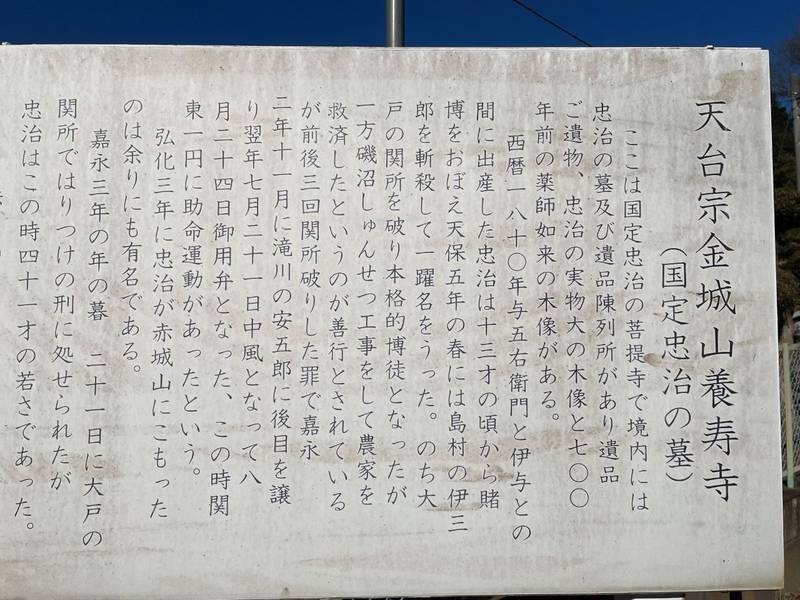 天台宗金城山養寿寺
（国定忠治の墓）
ここは国定忠治の菩提寺で境内には
忠治の墓及び遺品陳列所があり遺品
ご遺物、忠治の実物大の木像と七〇〇
年前の薬師如来の木像がある。
西暦一八十〇年与五右衛門と伊与との
間に出産した忠治は十三才の頃から賭
博をおぼえ天保五年の春には島村の伊三
郎を斬殺して一躍名をうった。のち大
戸の関所を破り本格的博徒となったが
一方磯沼しゅんせつ工事をして農家を
救済したというのが善行とされている
が前後三回関所破りした罪で嘉永
二年十一月に滝川の安五郎に後目を譲
り翌年七月二十一日中風となって八
月二十四日御用弁となった、この時関
東一円に助命運動があったという。
弘化三年に忠治が赤城山にこもった
のは余りにも有名である。
嘉永三年の年の暮　二十一日に大戸の
関所ではりつけの刑に処せられたが
忠治はこの時四十一才の若さであった。